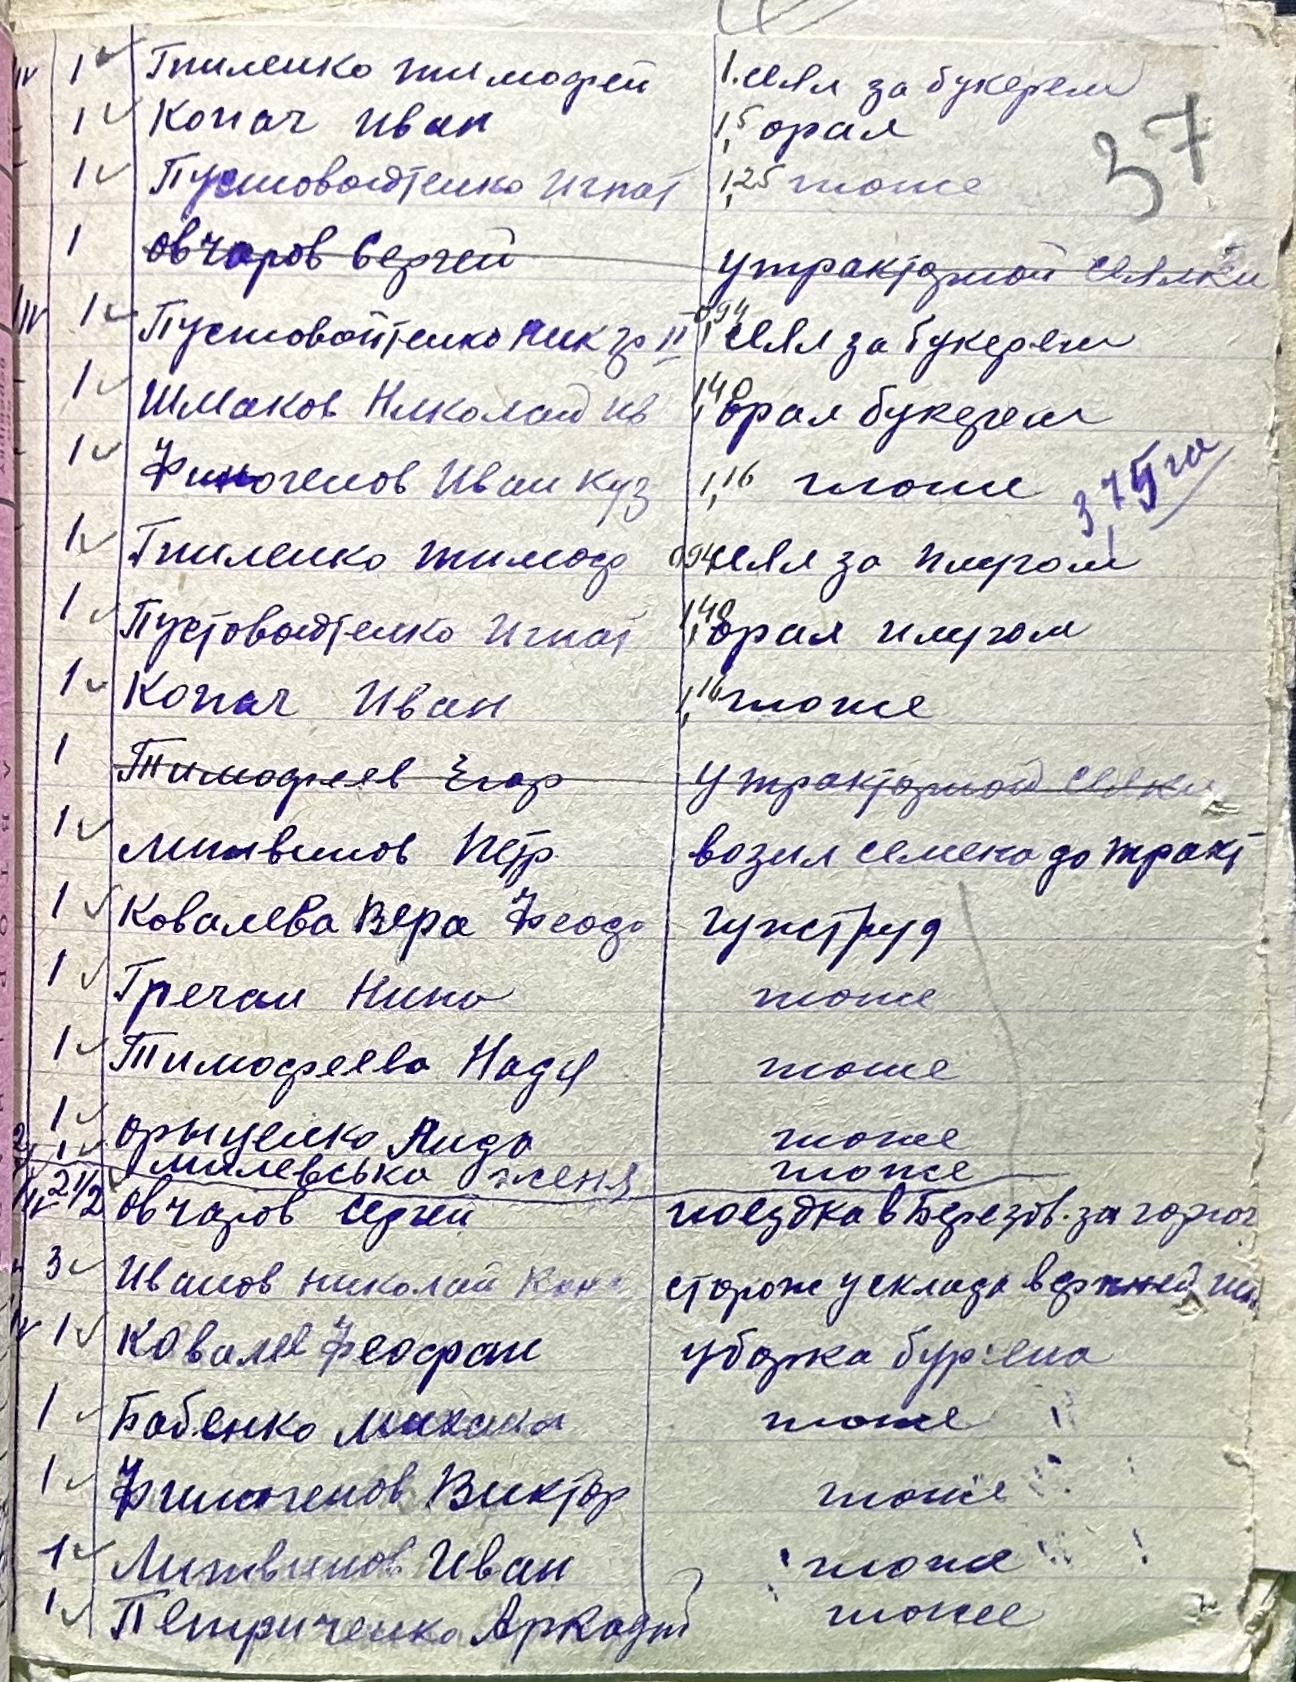 37
IV 1 Гниленко Тимофей 1. сеял за букерем
1 Копач Иван 1,5 орал
1 Пустовойтенко Игнат 1,25 тоже
1 Овчаров Сергей у тракторной сеялки
IV 1 Пустовойтенко Ник Гр II 0,94 сеял за букерем
1 Шмаков Николай Ив 1,40 орал букером
1 Финогенов Иван Куз 1,16 тоже
3,75 га
1 Гниленко Тимоф 0,94 сеял за плугом
1 Пустовойтенко Игнат 1,40 орал плугом
1 Копач Иван 1,16 тоже
1 Тимофеев Егор у тракторной сеялки
1 Литвинов Петр возил семена до тракт
1 Ковалева Вера Феодо гужтруд
1 Гречан Нина тоже
1 Тимофеева Надя тоже
1 Орыщенко Лида тоже
1 Милевська Женя тоже
IV 2 1/2 Овчаров Сергей поездка в Березов. за горюч
3 Иванов Николай Кон сторож у склада
IV 1 Ковалев Феофан уборка бурьена
1 Бабенко Михаил тоже
1 Финогенов Виктор тоже
1 Литвинов Иван тоже
1 Петриченко Аркадий тоже